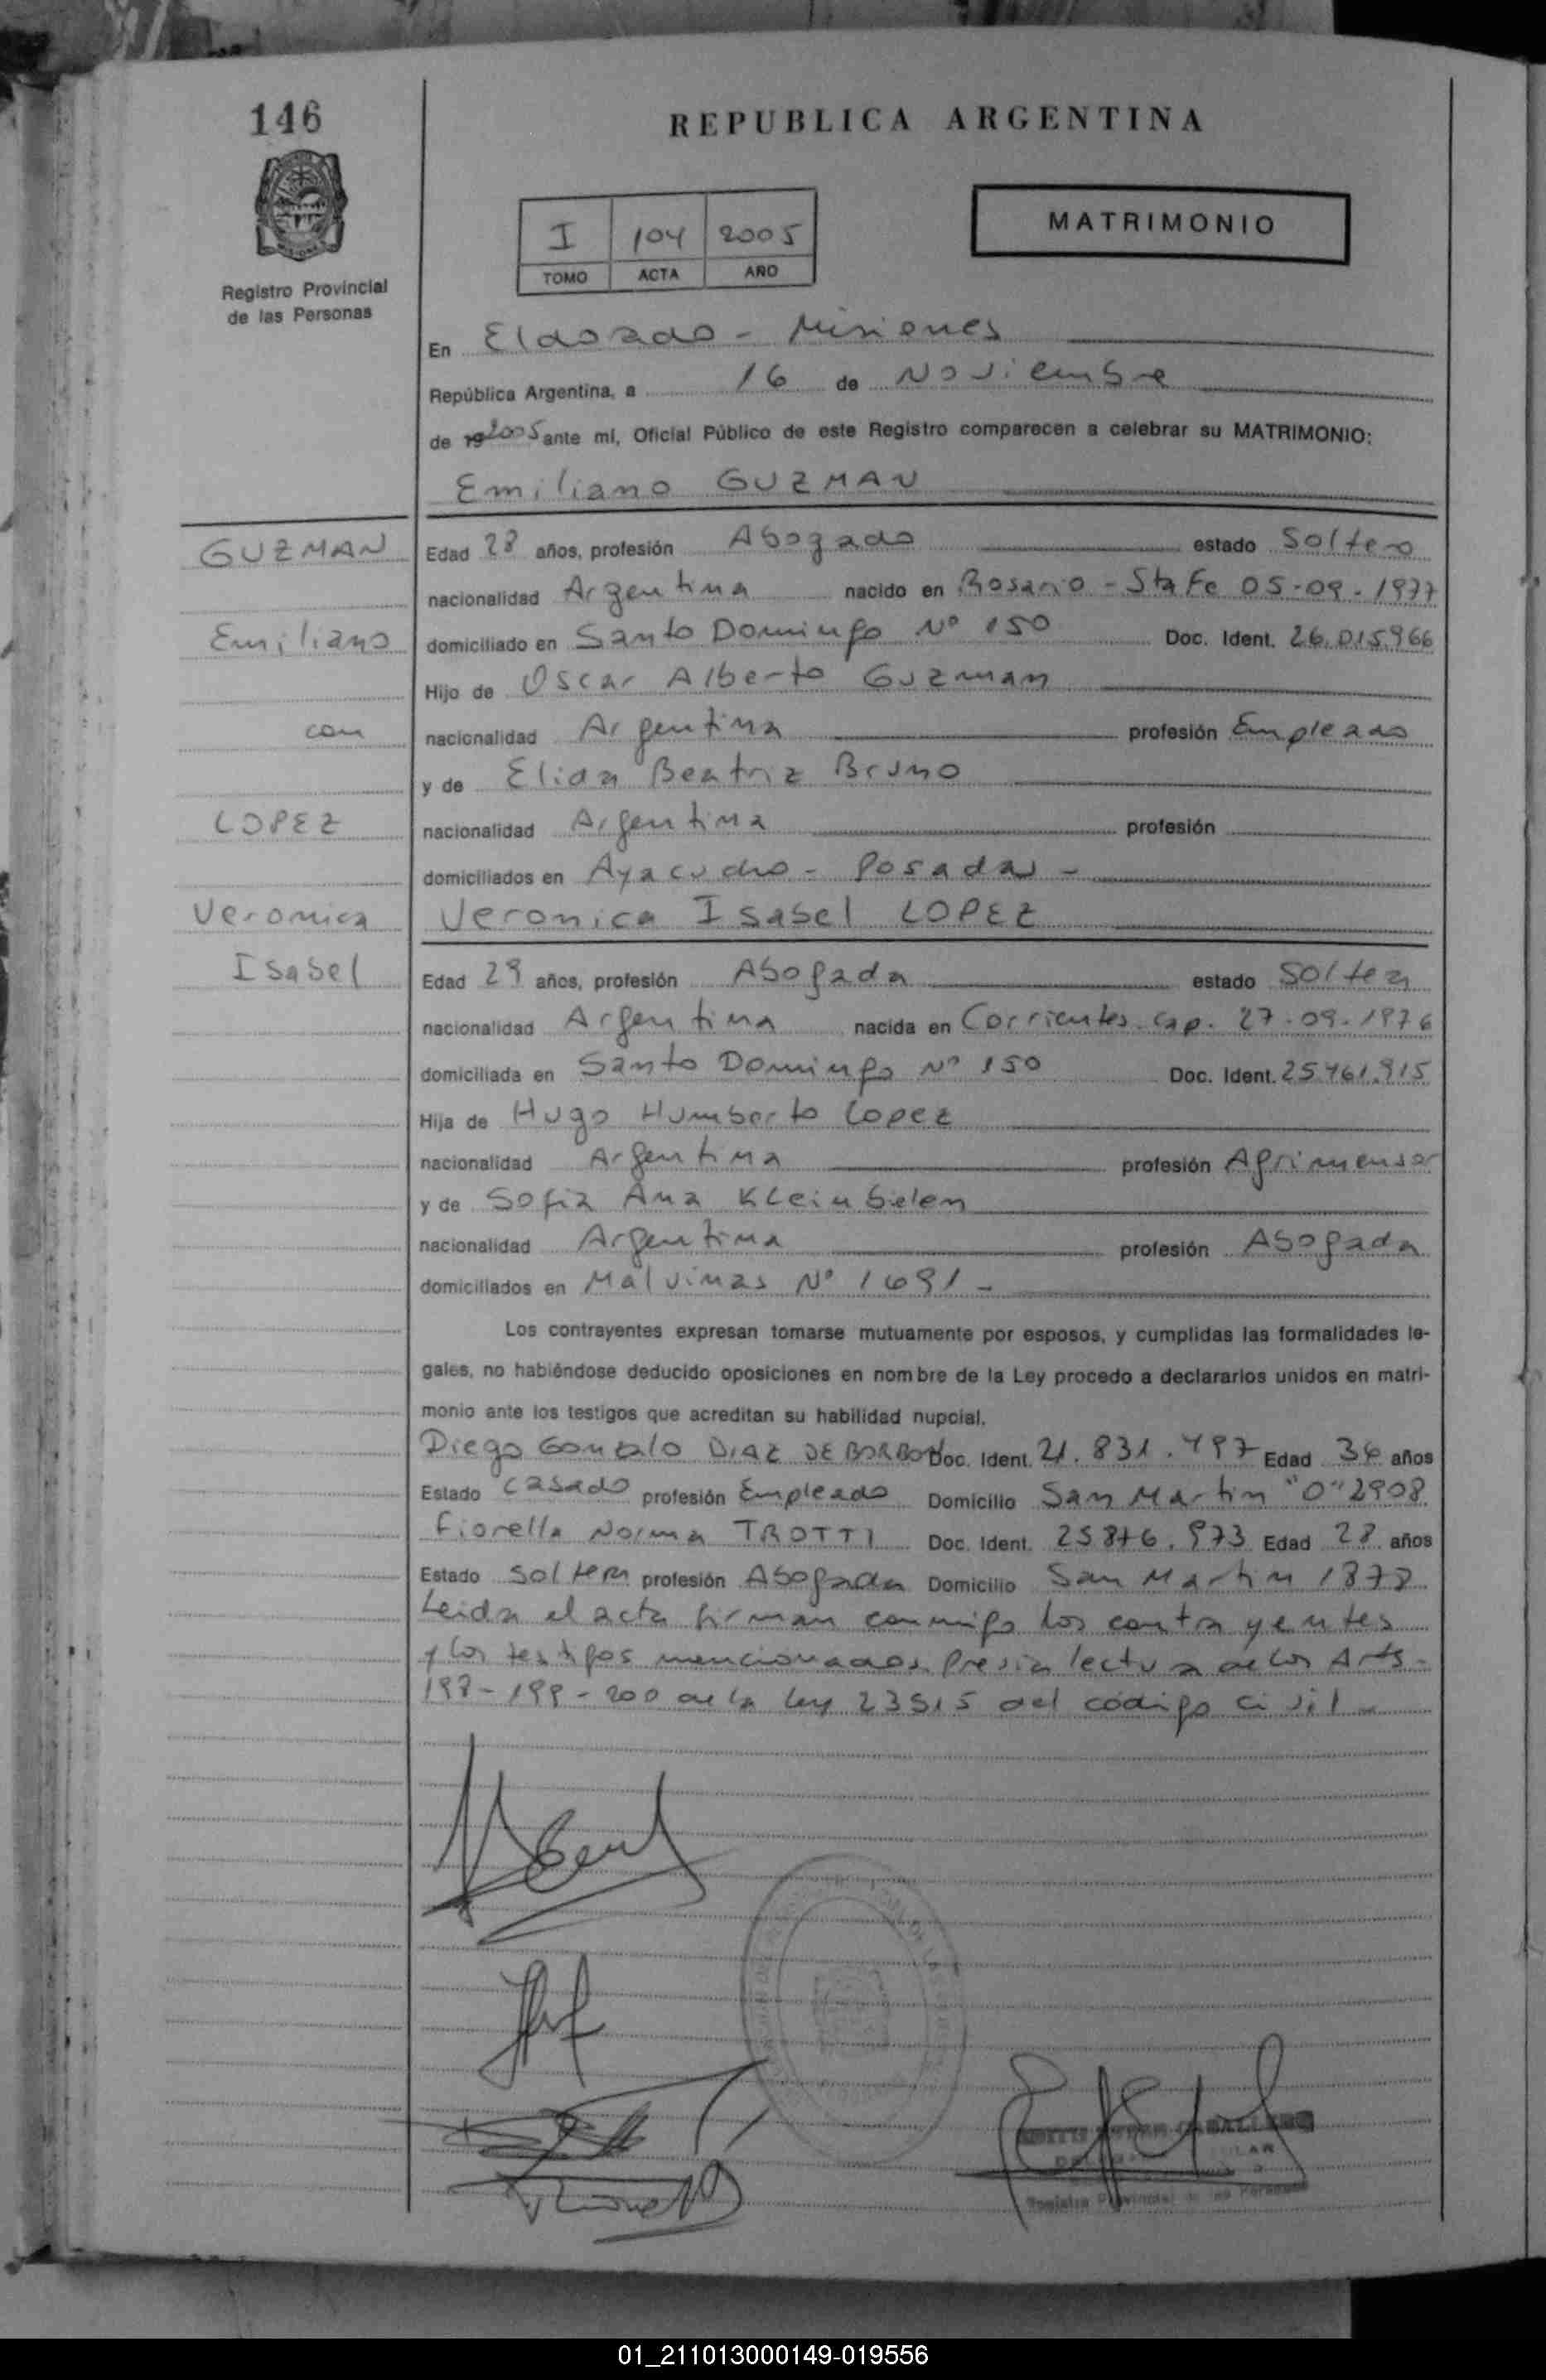 146
REPUBLICA ARGENTINA
MATRIMONIO
I 104 2005
TOMO ACTA AÑO
Registro Provincial
de las Personas
En Eldorado - Misiones
República Argentina, a 16 de Noviembre
de 19 2005 ante mí, Oficial Público de este Registro comparecen a celebrar su MATRIMONIO:
Emiliano GUZMAN
GUZMAN
Edad 28 años, profesión Abogado estado Soltero
nacionalidad Argentina nacido en Rosario - Sta Fe 05-09-1977
Emiliano
domiciliado en Santo Domingo Nº 150 Doc. Ident. 26.015.966
Hijo de Oscar Alberto Guzman
con
nacionalidad Argentina profesión Empleado
y de Elida Beatriz Bruno
LOPEZ
nacionalidad Argentina profesión
domiciliados en Ayacucho - Posadas -
Veronica
Veronica Isabel LOPEZ
Isabel
Edad 29 años, profesión Abogada estado Soltera
nacionalidad Argentina nacida en Corrientes cap. 27-09-1976
domiciliada en Santo Domingo Nº 150 Doc. Ident. 25.461.915
Hija de Hugo Humberto Lopez
nacionalidad Argentina profesión Agrimensor
y de Sofia Ana Kleinbielen
nacionalidad Argentina profesión Abogada
domiciliados en Malvinas Nº 1691 -
Los contrayentes expresan tomarse mutuamente por esposos, y cumplidas las formalidades le-
gales, no habiéndose deducido oposiciones en nombre de la Ley procedo a declararlos unidos en matri-
monio ante los testigos que acreditan su habilidad nupcial.
Diego Gonzalo DIAZ DE BORBON Doc. Ident. 21.831.497 Edad 34 años
Estado Casado profesión Empleado Domicilio San Martin "O" 2908
Fiorella Norma TROTTI Doc. Ident. 25.876.973 Edad 28 años
Estado Soltera profesión Abogada Domicilio San Martin 1878
Leida el acta firman conmigo los contrayentes
y los testigos mencionados. Previa lectura de los Arts.
198-199-200 de la ley 23515 del código civil -
CABALLERO
Registro Provincial de las Personas
01_211013000149-019556